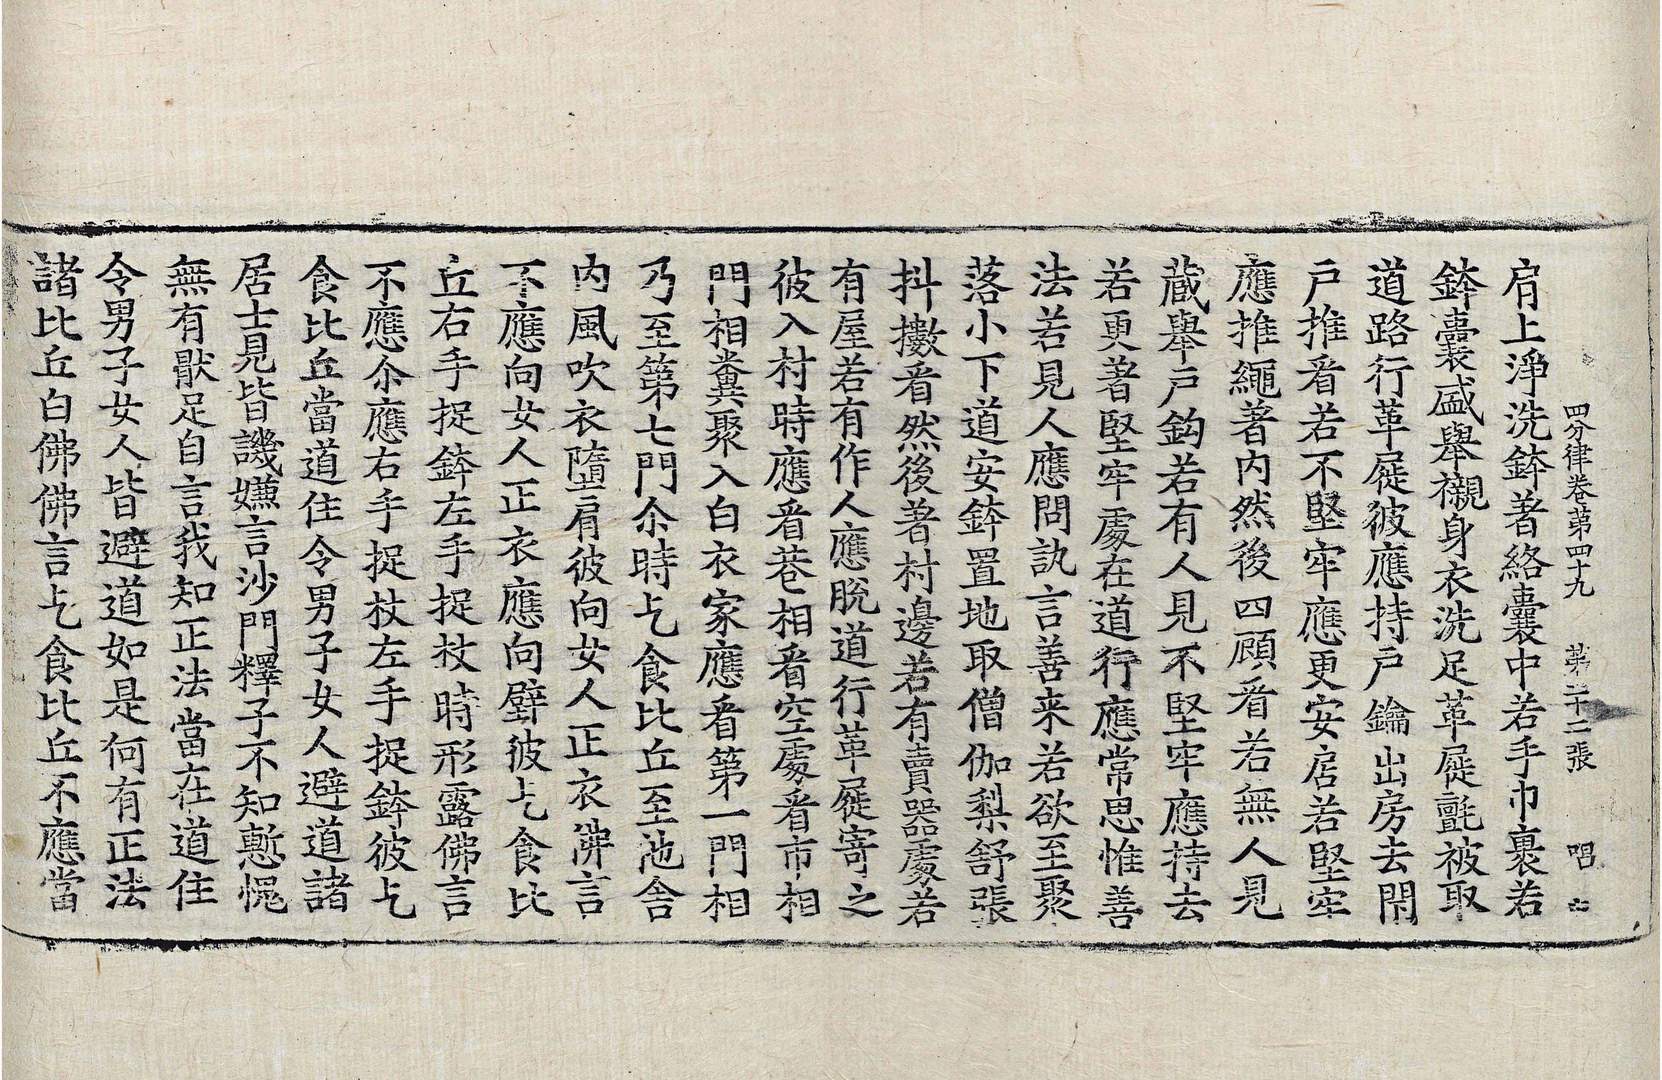 四分律卷第四十九 第二十二張 唱
肩上淨洗鉢著絡囊中若手巾裹若
鉢囊盛舉襯身衣洗足革屣氎被取
道路行革屣彼應持戶鑰出房去閇
戶推看若不堅牢應更安扂若堅牢
應推繩著內然後四顧看若無人見
蔵舉戶鈎若有人見不堅牢應持去
若更著堅牢處在道行應常思惟善
法若見人應問訊言善来若欲至聚
落小下道安鉢置地取僧伽梨舒張
抖擻看然後著村邊若有賣器處若
有屋若有作人應脫道行革屣寄之
彼入村時應看巷相看空處看市相
門相糞聚入白衣家應看第一門相
乃至第七門尒時乞食比丘至池舍
內風吹衣墮肩彼向女人正衣佛言
不應向女人正衣應向壁彼乞食比
丘右手捉鉢左手捉杖時形露佛言
不應尒應右手捉杖左手捉鉢彼乞
食比丘當道住令男子女人避道諸
居士見皆譏嫌言沙門釋子不知慙愧
無有猒足自言我知正法當在道住
令男子女人皆避道如是何有正法
諸比丘白佛佛言乞食比丘不應當